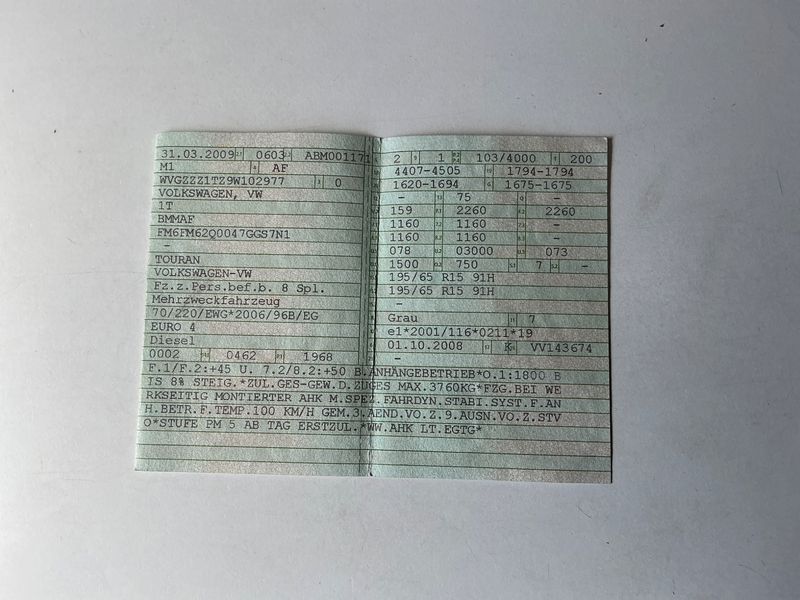 31.03.2009 0603 ABM001171
M1 AF
WVGZZZ1TZ9W102977 0
VOLKSWAGEN, VW
1T
BMMAF
FM6FM62Q0047GGS7N1
-
TOURAN
VOLKSWAGEN-VW
Fz.z.Pers.bef.b. 8 Spl.
Mehrzweckfahrzeug
70/220/EWG*2006/96B/EG
EURO 4
Diesel
0002 0462 1968
2 1 103/4000 200
4407-4505 1794-1794
1620-1694 1675-1675
- 75 -
159 2260 2260
1160 1160 -
1160 1160 -
078 03000 073
1500 750 7 -
195/65 R15 91H
195/65 R15 91H
-
Grau 7
e1*2001/116*0211*19
01.10.2008 K VV143674
-
F.1/F.2:+45 U. 7.2/8.2:+50 B.ANHÄNGEBETRIEB*O.1:1800 B
IS 8% STEIG.*ZUL.GES-GEW.D.ZUGES MAX.3760KG*FZG.BEI WE
RKSEITIG MONTIERTER AHK M.SPEZ.FAHRDYN.STABI.SYST.F.AN
H.BETR.F.TEMP.100 KM/H GEM.3.AEND.VO.Z.9.AUSN.VO.Z.STV
O*STUFE PM 5 AB TAG ERSTZUL.*WW.AHK LT.EGTG*